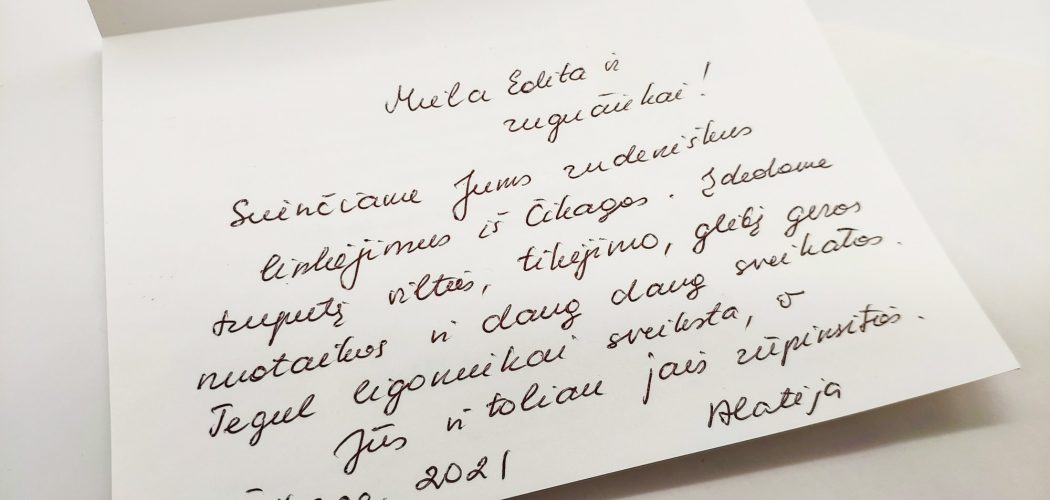 Miela Edita ir
rugučiukai!
Siunčiame Jums rudeniškus
linkėjimus iš Čikagos. Įdedame
truputį vilties, tikėjimo, glėbį geros
nuotaikos ir daug daug sveikatos.
Tegul ligoniukai sveiksta, o
Jūs ir toliau jais rūpinsitės.
2021